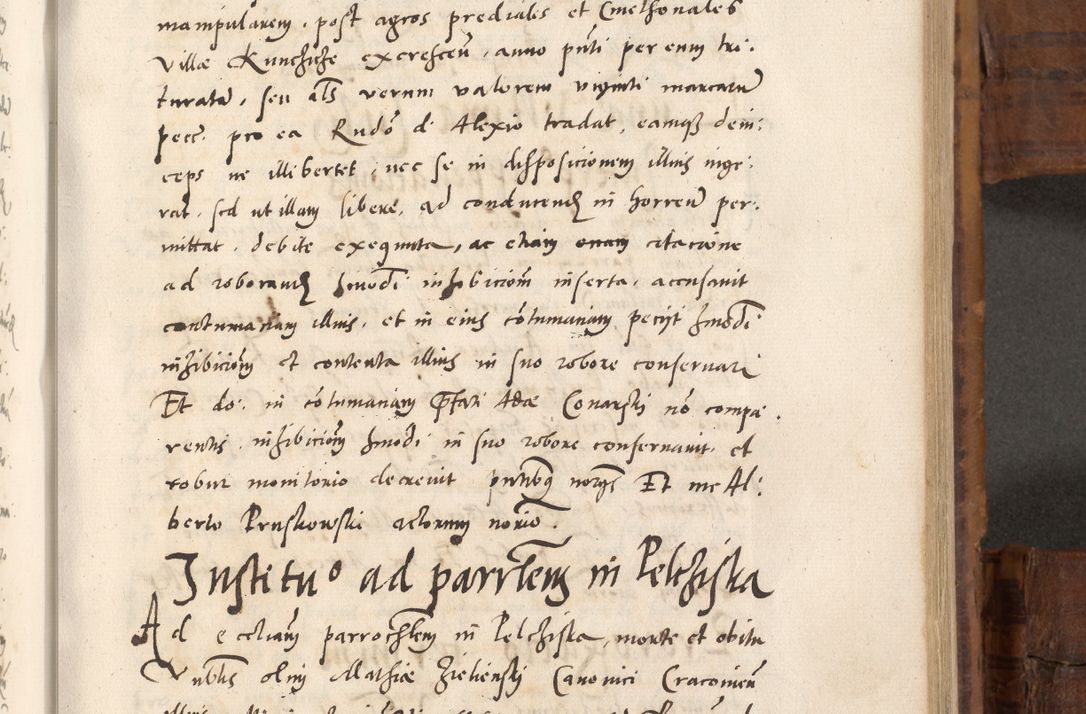 manipularem, post agros prediales et Cmethonales
villæ Kunchiche excrescen̄, anno pn̄ti per eum tri:
turatā, seu als verum valorem viginti marcarū
pecc̄. pro ea Rndō d. Alexio tradat, eamq3 dein:
ceps ne illi bertet, nec se in disposicionem illius inge:
rat, sed ut illam libere, ad conducend in horreū per:
mittat, debite exequuta, ac etiam citacione
ad roborand hmōdi inhibicioni inserta, accusavit
contumaciam illius, et in eius cōtumaciam peciit hmōdi
inhibicionem et contenta illius in suo robore conservari
Et do: in cōtumaciam pfati Adæ Conarski nō compa:
rentis, inhibicionem hmōdi in suo robore conservavit, et
robur monitorio decrevit pntibq norgs Et me Al:
berto Pruskowski actorum norio.
Institu° ad parrlem in Pelchiska
Ad eccliam parrochlem in Pelchiska, morte et obitu
Vnblis olim Mathiæ Zielienski Canonici Cracovien̄